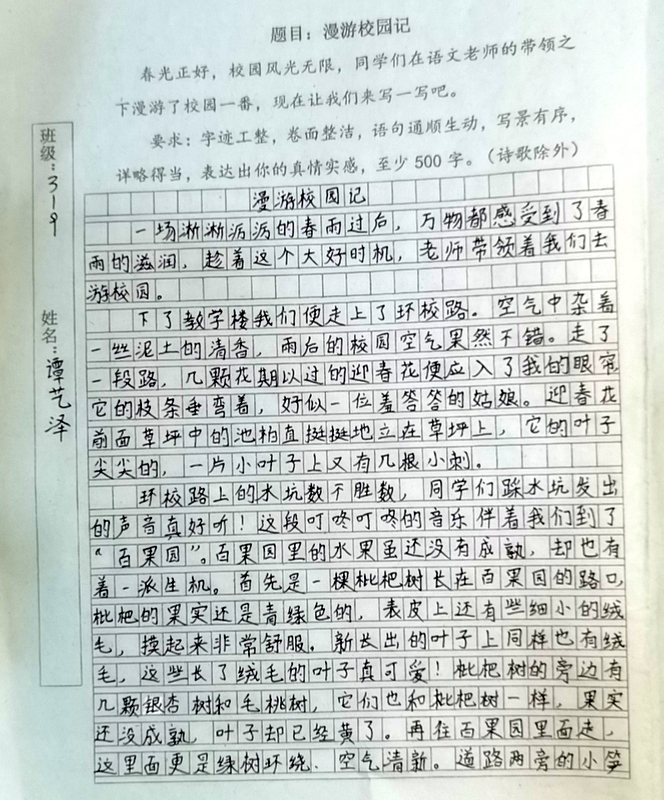 题目：漫游校园记
春光正好，校园风光无限，同学们在语文老师的带领之
下漫游了校园一番，现在让我们来写一写吧。
要求：字迹工整，卷面整洁，语句通顺生动，写景有序，
详略得当，表达出你的真情实感，至少 500 字。（诗歌除外）
班级：319
姓名：谭艺泽
漫游校园记
一场淅淅沥沥的春雨过后，万物都感受到了春
雨的滋润，趁着这个大好时机，老师带领着我们去
游校园。
下了教学楼我们便走上了环校路．空气中杂着
一丝泥土的清香，雨后的校园空气果然不错。走了
一段路，几颗花期以过的迎春花便应入了我的眼帘
它的枝条垂弯着，好似一位羞答答的姑娘。迎春花
前面草坪中的池柏直挺挺地立在草坪上，它的叶子
尖尖的，一片小叶子上又有几根小刺。
环校路上的水坑数不胜数，同学们踩水坑发出
的声音真好听！这段叮咚叮咚的音乐伴着我们到了
“百果园”。百果园里的水果虽还没有成熟，却也有
着一派生机。首先是一棵枇杷树长在百果园的路口，
枇杷的果实还是青绿色的，表皮上还有些细小的绒
毛，摸起来非常舒服。新长出的叶子上同样也有绒
毛，这些长了绒毛的叶子真可爱！枇杷树的旁边有
几颗银杏树和毛桃树，它们也和枇杷树一样，果实
还没成熟，叶子却已经黄了。再往百果园里面走，
这里面更是绿树环绕．空气清新。道路两旁的小笋